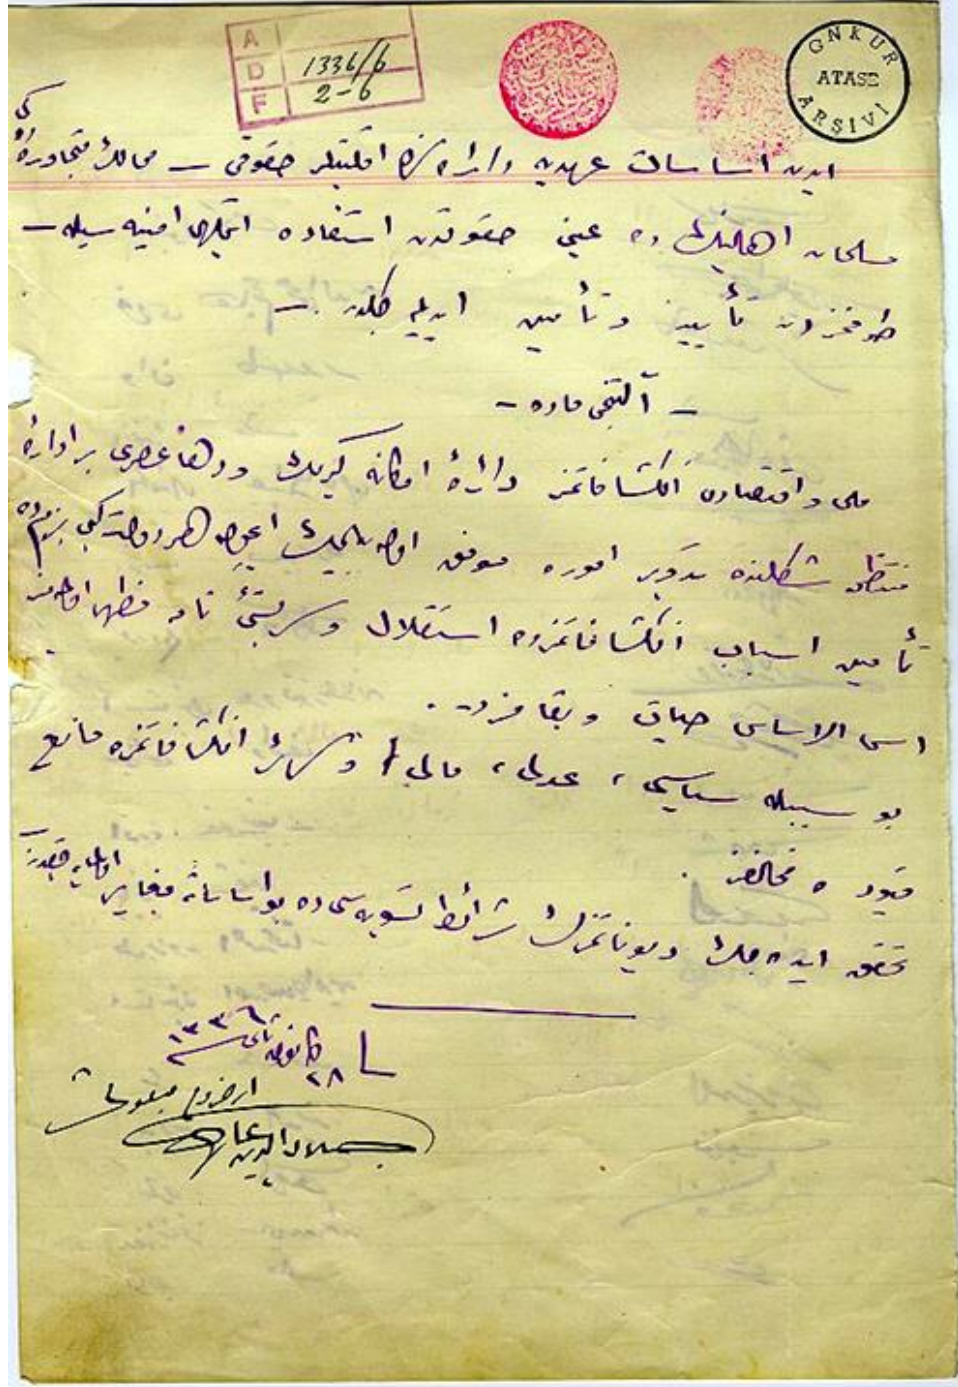 A
D
F
1336/6
2-6
GNKUR
ATASE
ARŞİVİ
ايدن اساسات عهديه دائره سنده اقليتلر حقوقى — ممالك متجاوره ده كى
مسلمان اهالينك ده عينى حقوقدن استفاده ايتملرى امنيه سيله —
طرفمزدن تأييد و تأمين ايديله جكدر —
— آلتنجى ماده —
ملى و اقتصادى انكشافاتمز دائره امكانه كيرمك و دها عصرى بر اداره
منتظمه شكلنده تدوير اموره موفق اوله بيلمك ايچون هر دولت كبى بزم ده
تأمين اسباب انكشافاتمزده استقلال و سربستئ تامه مظهر اولمامز
اس الاساس حيات و بقامزدر .
بو سببله سياسى ، عدلى ، مالى و سائر انكشافاتمزه مانع
قيوده مخالفز .
تحقق ايده جك ديوناتمزك شرائط تسويه سى ده بو اساساته مغاير اولمايه جقدر
٢٨ كانون ثانى ١٣٣٦
ارضروم مبعوثى
جلال الدين عارف